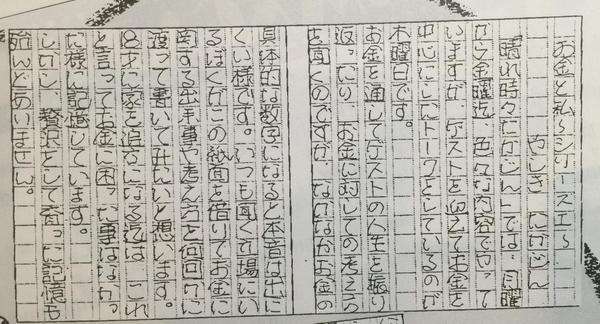 お金と私〜シリーズI〜
やしき たかじん
「晴れ時々たかじん」では、月曜
から金曜迄、色々な内容でやって
いますが、ゲストを迎えてお金を
中心にしたトークをしているのが
木曜日です。
お金を通してゲストの人生を振り
返ったり、お金に対しての考え方
を聞くのですが、なかなかお金の
具体的な数字になると本音は出に
くい様です。いつも聞く立場にい
るぼくがこの紙面を借りてお金に
関する出来事や考え方を何回かに
渡って書いて みたいと想います。
家を になる迄は、これ
と言ってお金に困った事はなかっ
た様に記憶しています。
しかし、贅沢をして育った記憶も
殆んどありません。